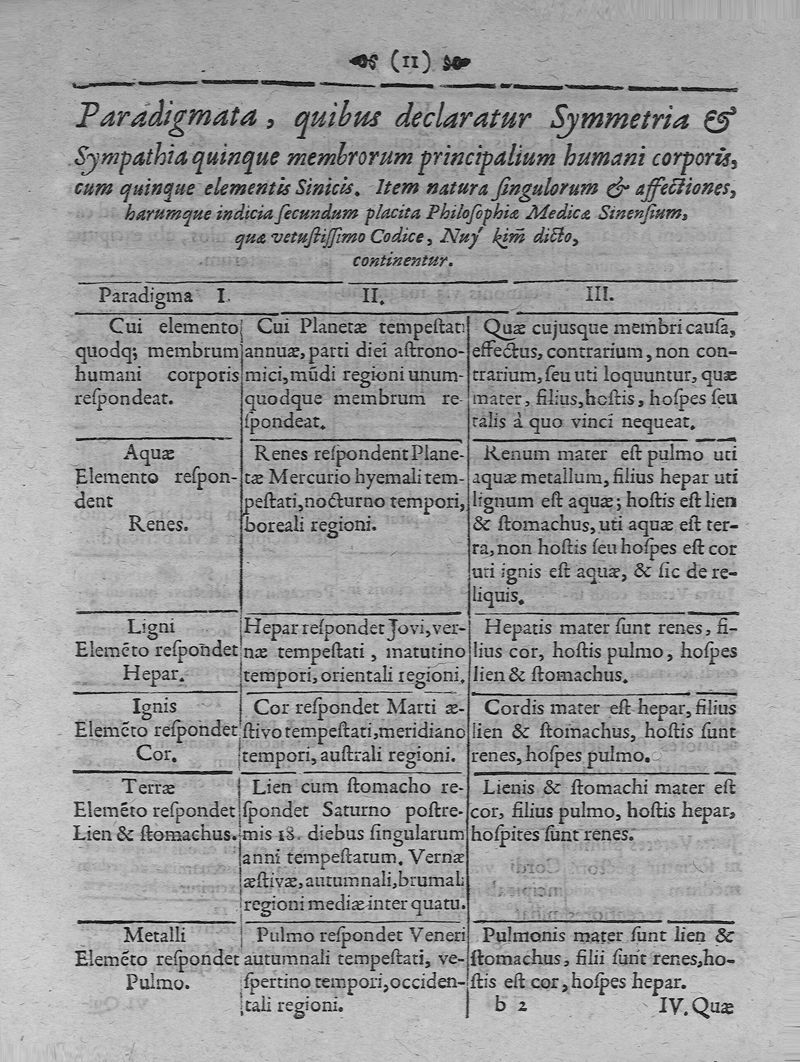 (11)
Paradigmata, quibus declaratur Symmetria &
Sympathia quinque membrorum principalium humani corporis,
cum quinque elementis Sinicis. Item natura ſingulorum & affectiones,
harumque indicia ſecundum placita Philoſophiæ Medicæ Sinenſium,
quæ vetuſtiſſimo Codice, Nuy kim̃ dicto,
continentur.
Paradigma I.
Cui elemento
quodq; membrum
humani corporis
reſpondeat.
Aquæ
Elemento reſpon-
dent
Renes.
Ligni
Elemẽto reſpondet
Hepar.
Ignis
Elemẽto reſpondet
Cor.
Terræ
Elemẽto reſpondet
Lien & ſtomachus.
Metalli
Elemẽto reſpondet
Pulmo.
II.
Cui Planetæ tempeſtati
annuæ, parti diei aſtrono-
mici, mũdi regioni unum-
quodque membrum re-
ſpondeat.
Renes reſpondent Plane-
tæ Mercurio hyemali tem-
peſtati, nocturno tempori,
boreali regioni.
Hepar reſpondet Jovi, ver-
næ tempeſtati, matutino
tempori, orientali regioni.
Cor reſpondet Marti æ-
ſtivo tempeſtati, meridiano
tempori, auſtrali regioni.
Lien cum ſtomacho re-
ſpondet Saturno poſtre-
mis 18. diebus ſingularum
anni tempeſtatum. Vernæ
æſtivæ, autumnali, brumali
regioni mediæ inter quatu.
Pulmo reſpondet Veneri
autumnali tempeſtati, ve-
ſpertino tempori, occiden-
tali regioni.
III.
Quæ cujusque membri cauſa,
effectus, contrarium, non con-
trarium, ſeu uti loquuntur, quæ
mater, filius, hoſtis, hoſpes ſeu
talis à quo vinci nequeat.
Renum mater eſt pulmo uti
aquæ metallum, filius hepar uti
lignum eſt aquæ; hoſtis eſt lien
& ſtomachus, uti aquæ eſt ter-
ra, non hoſtis ſeu hoſpes eſt cor
uti ignis eſt aquæ, & ſic de re-
liquis.
Hepatis mater ſunt renes, fi-
lius cor, hoſtis pulmo, hoſpes
lien & ſtomachus.
Cordis mater eſt hepar, filius
lien & ſtomachus, hoſtis ſunt
renes, hoſpes pulmo.
Lienis & ſtomachi mater eſt
cor, filius pulmo, hoſtis hepar,
hoſpites ſunt renes.
Pulmonis mater ſunt lien &
ſtomachus, filii ſunt renes, ho-
ſtis eſt cor, hoſpes hepar.
b 2
IV. Quæ